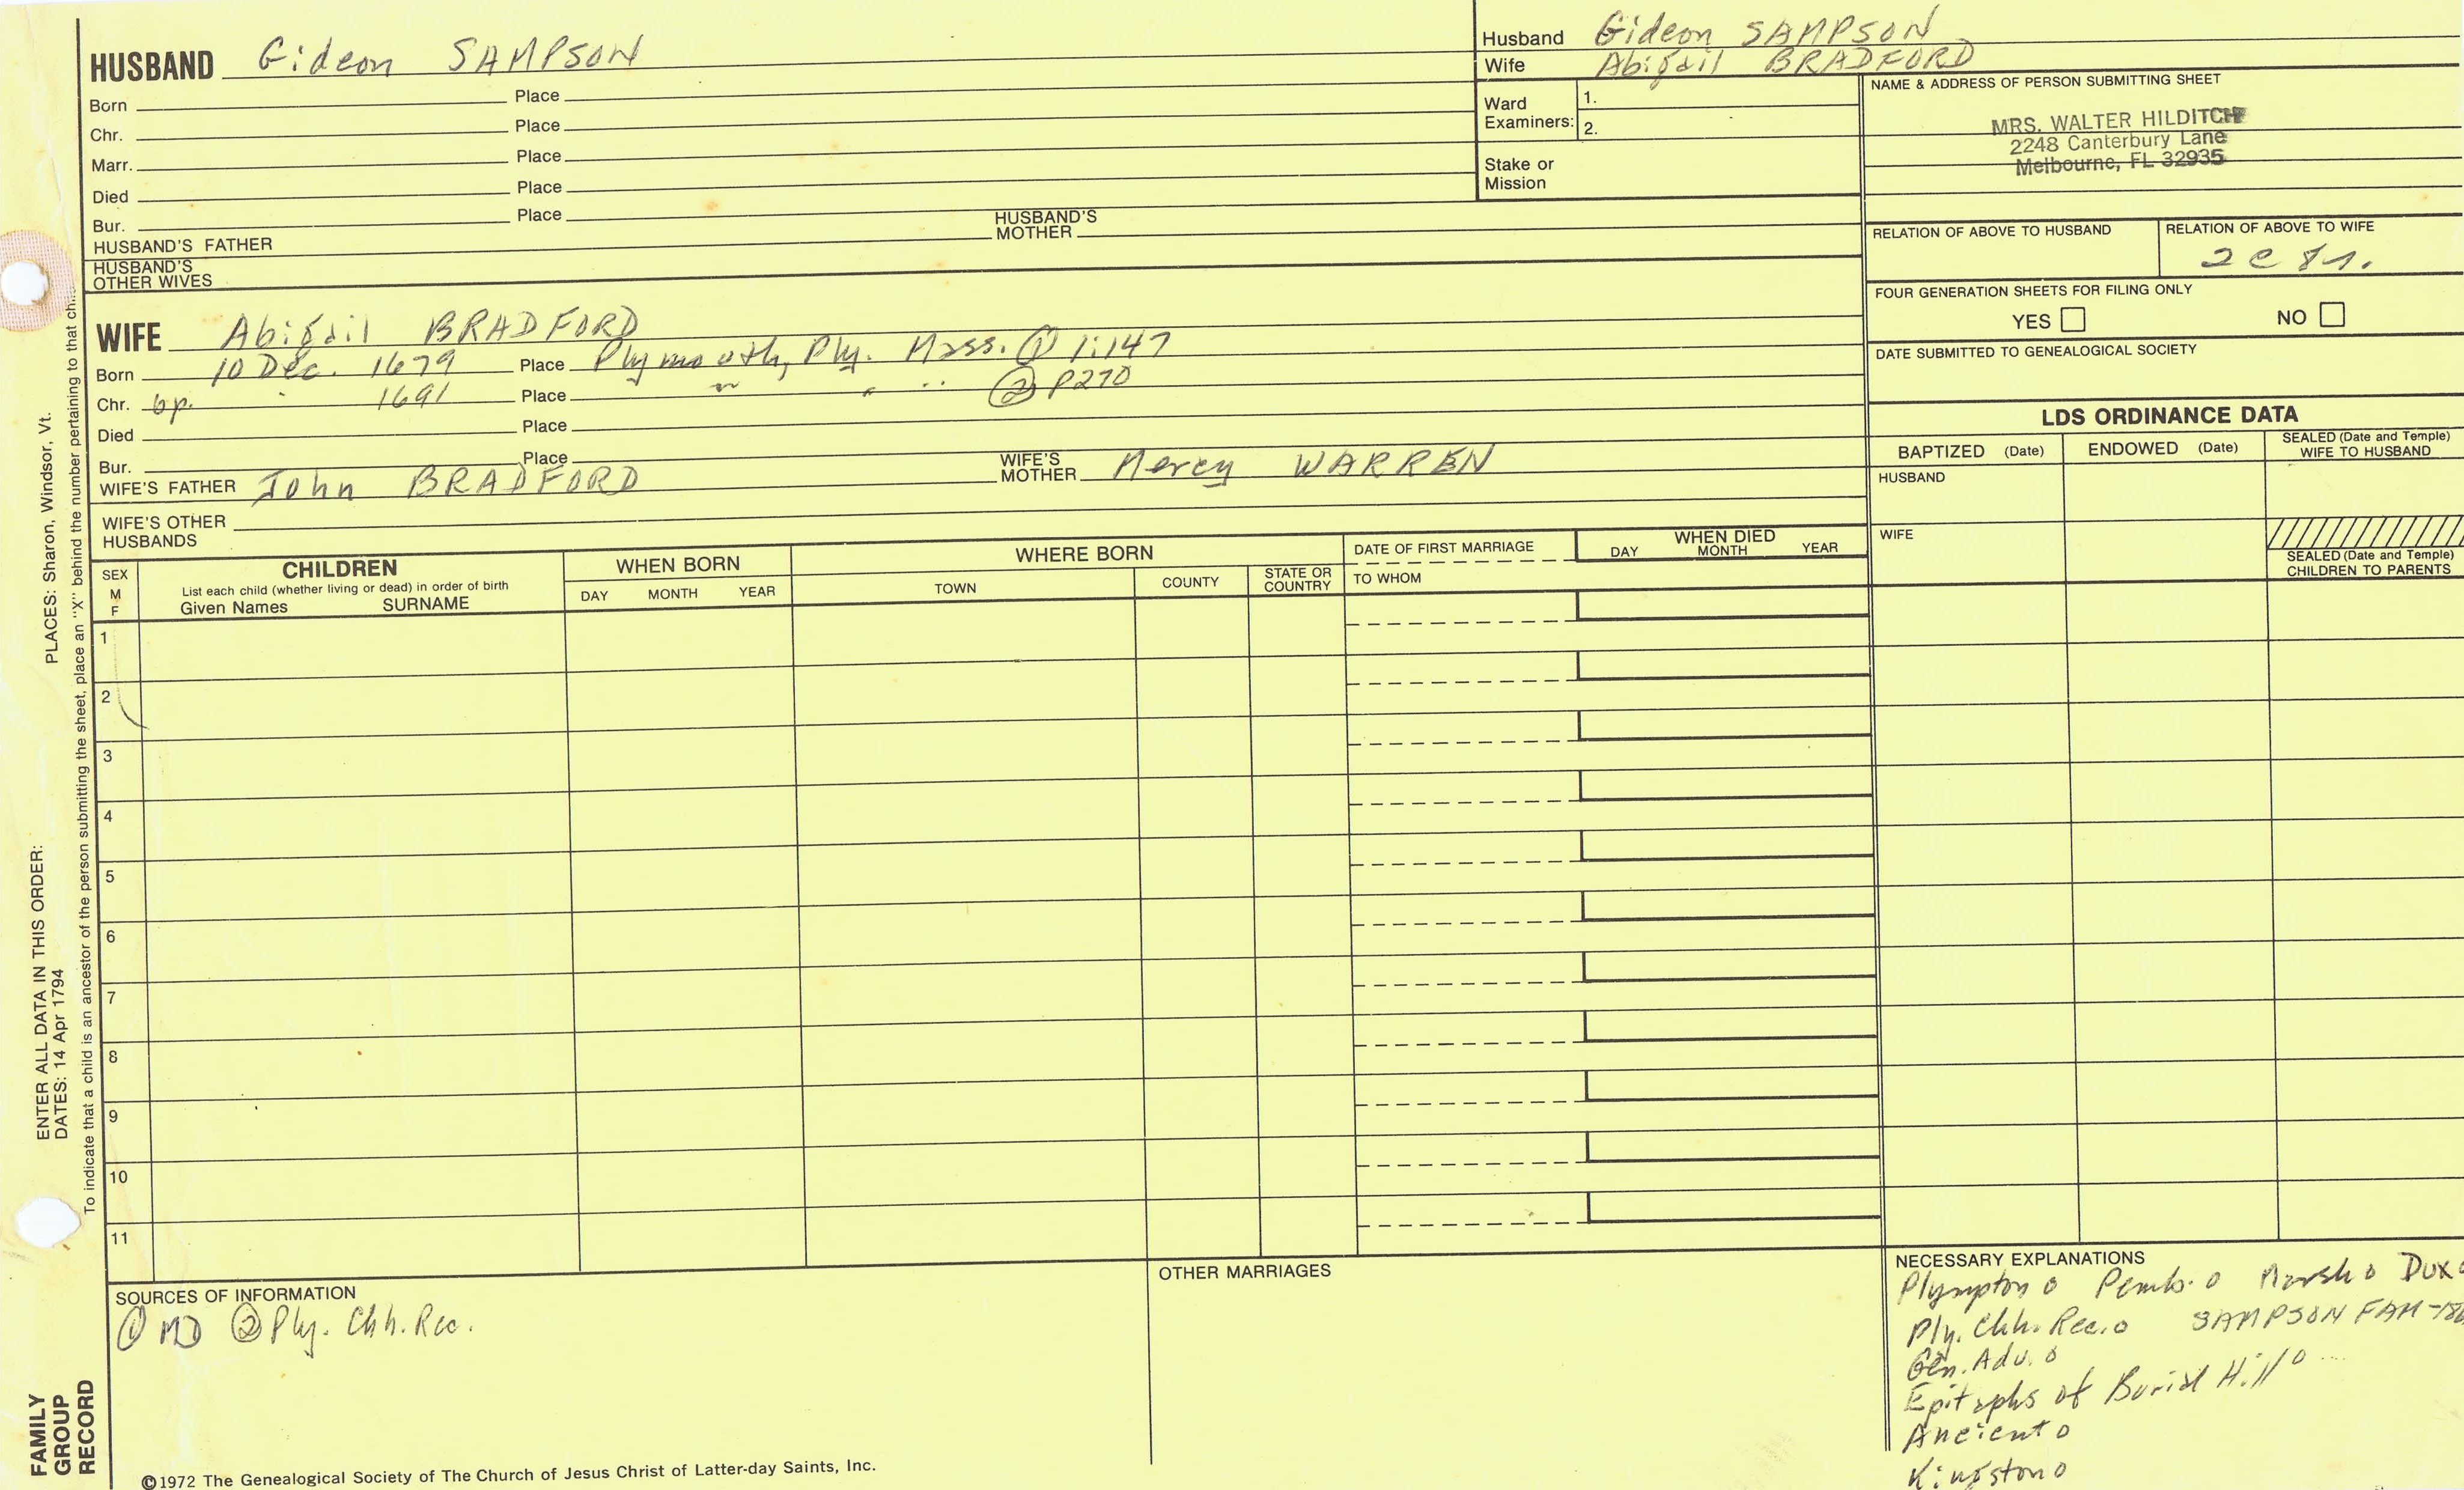 HUSBAND Gideon SAMPSON
Born Place
Chr. Place
Marr. Place
Died Place
Bur. Place
HUSBAND'S FATHER HUSBAND'S MOTHER
HUSBAND'S OTHER WIVES
WIFE Abigail BRADFORD
Born 10 Dec. 1679 Place Plymouth, Ply. Mass. ① 1:147
Chr. bp. 1691 Place " " " ② P270
Died Place
Bur. Place
WIFE'S FATHER John BRADFORD WIFE'S MOTHER Mercy WARREN
WIFE'S OTHER HUSBANDS
Husband Gideon SAMPSON
Wife Abigail BRADFORD
Ward Examiners: 1.
2.
Stake or Mission
NAME & ADDRESS OF PERSON SUBMITTING SHEET
MRS. WALTER HILDITCH
2248 Canterbury Lane
Melbourne, FL 32935
RELATION OF ABOVE TO HUSBAND RELATION OF ABOVE TO WIFE
2c 8r.
FOUR GENERATION SHEETS FOR FILING ONLY
YES NO
DATE SUBMITTED TO GENEALOGICAL SOCIETY
LDS ORDINANCE DATA
BAPTIZED (Date) ENDOWED (Date) SEALED (Date and Temple) WIFE TO HUSBAND
HUSBAND
WIFE
SEALED (Date and Temple) CHILDREN TO PARENTS
SEX M F
CHILDREN
List each child (whether living or dead) in order of birth
Given Names SURNAME
WHEN BORN
DAY MONTH YEAR
WHERE BORN
TOWN COUNTY STATE OR COUNTRY
DATE OF FIRST MARRIAGE
TO WHOM
WHEN DIED
DAY MONTH YEAR
1
2
3
4
5
6
7
8
9
10
11
SOURCES OF INFORMATION
① MD ② Ply. Chh. Rec.
OTHER MARRIAGES
NECESSARY EXPLANATIONS
Plympton o Pemb. o Marsh o Dux
Ply. Chh. Rec. o SAMPSON FAM
Gen. Adv. o
Epitaphs of Burial Hill o
Ancient o
Kingston o
PLACES: Sharon, Windsor, Vt.
ENTER ALL DATA IN THIS ORDER:
DATES: 14 Apr 1794
To indicate that a child is an ancestor of the person submitting the sheet, place an "X" behind the number pertaining to that
FAMILY GROUP RECORD
©1972 The Genealogical Society of The Church of Jesus Christ of Latter-day Saints, Inc.